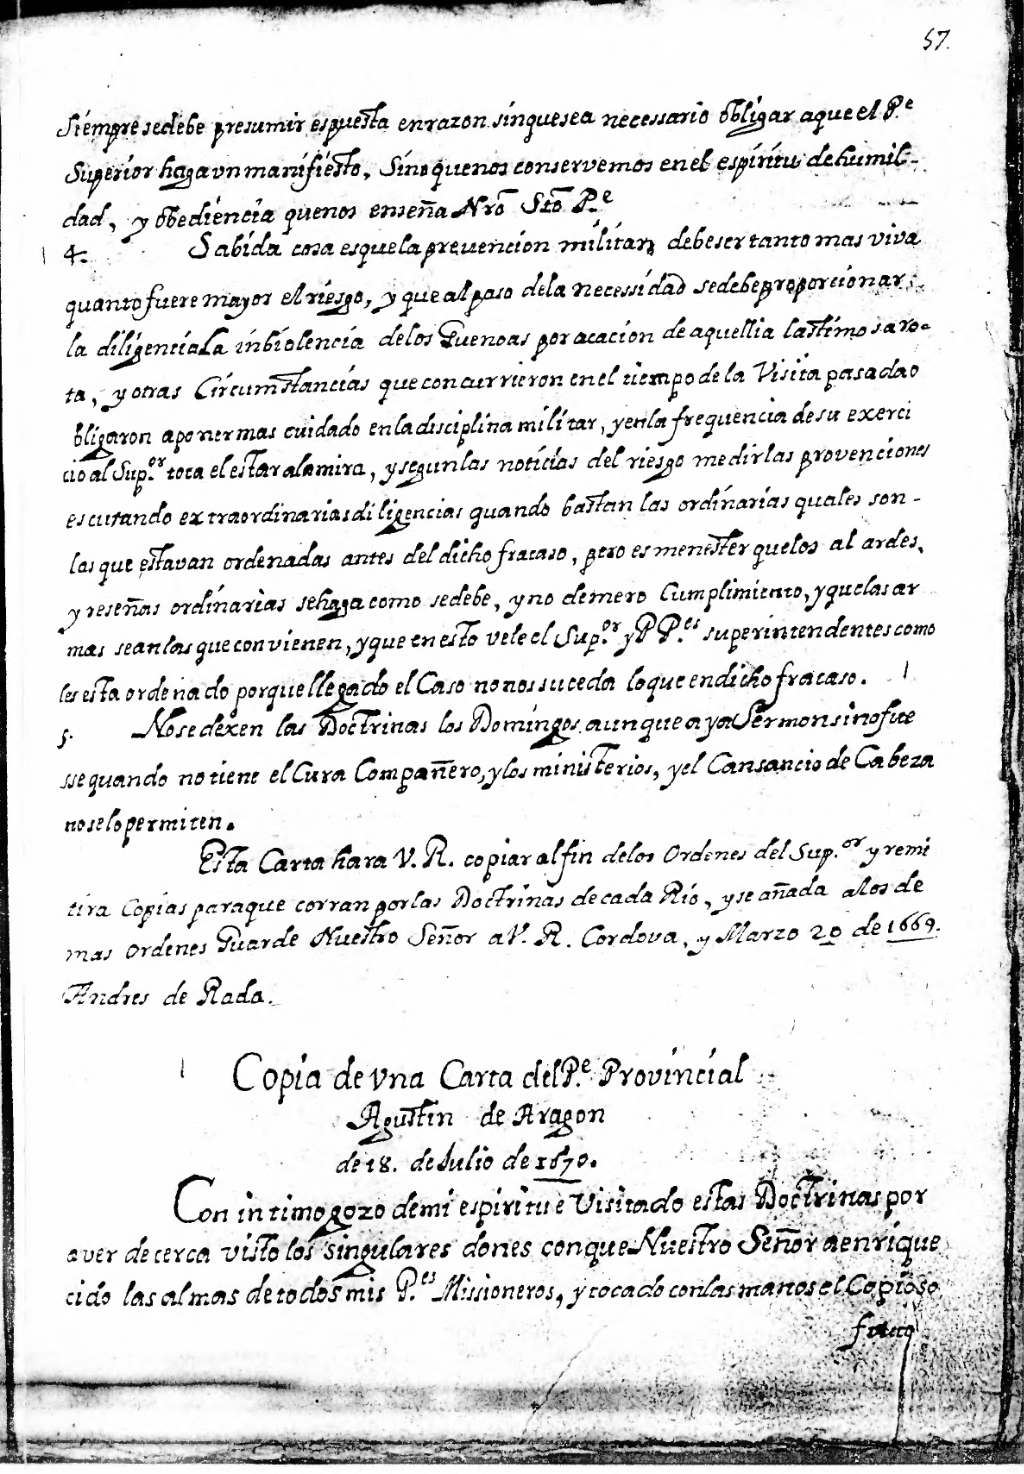 57.
siempre se debe presumir espuesta en razon sin que sea necessario obligar a que el P.e
Superior haga vn manifiesto, Sino que nos conservemos en el espiritu de humil-
dad, y obediencia que nos enseña Nro Sto P.e
4. Sabida cosa es que la prevencion militar, debe ser tanto mas viva
quanto fuere mayor el riesgo, y que al paso de la necessidad se debe proporcionar
la diligencia La inbiolencia de los Guenoas por acacion de aquellia lastimosa ro-
ta, y otras Circumstancias que concurrieron en el tiempo de la Visita pasada o
bligaron a poner mas cuidado en la disciplina militar, y en la frequencia de su exerci
cio al Sup.or toca el estar a la mira, y segun las noticias del riesgo medir las provenciones
escutando extraordinarias diligencias quando bastan las ordinarias quales son-
las que estavan ordenadas antes del dicho fracaso, pero es menester que los alardes,
y reseñas ordinarias se haga como se debe, y no de mero Cumplimiento, y que las ar
mas sean las que convienen, y que en esto vele el Sup.or y PP.es superintendentes como
les esta ordenado porque llegado el Caso no nos suceda lo que en dicho fracaso.
5. No se dexen las Doctrinas los Domingos aunque aya Sermon sino fue
sse quando no tiene el Cura Compañero, y los ministerios, y el Cansancio de Cabeza
no se lo permiten.
Esta Carta hara V. R. copiar al fin de los Ordenes del Sup.or y remi
tira Copias para que corran por las Doctrinas de cada Rio, y se añada a los de
mas Ordenes Guarde Nuestro Señor a V. R. Cordova, y Marzo 20 de 1669.
Andres de Rada.
Copia de vna Carta del P.e Provincial
Agustin de Aragon
de 18. de Julio de 1670.
Con intimo gozo de mi espiritu e Visitado estas Doctrinas por
aver de cerca visto los singulares dones con que Nuestro Señor a enrique
cido las almas de todos mis P.es Missioneros, y tocado con las manos el Copioso